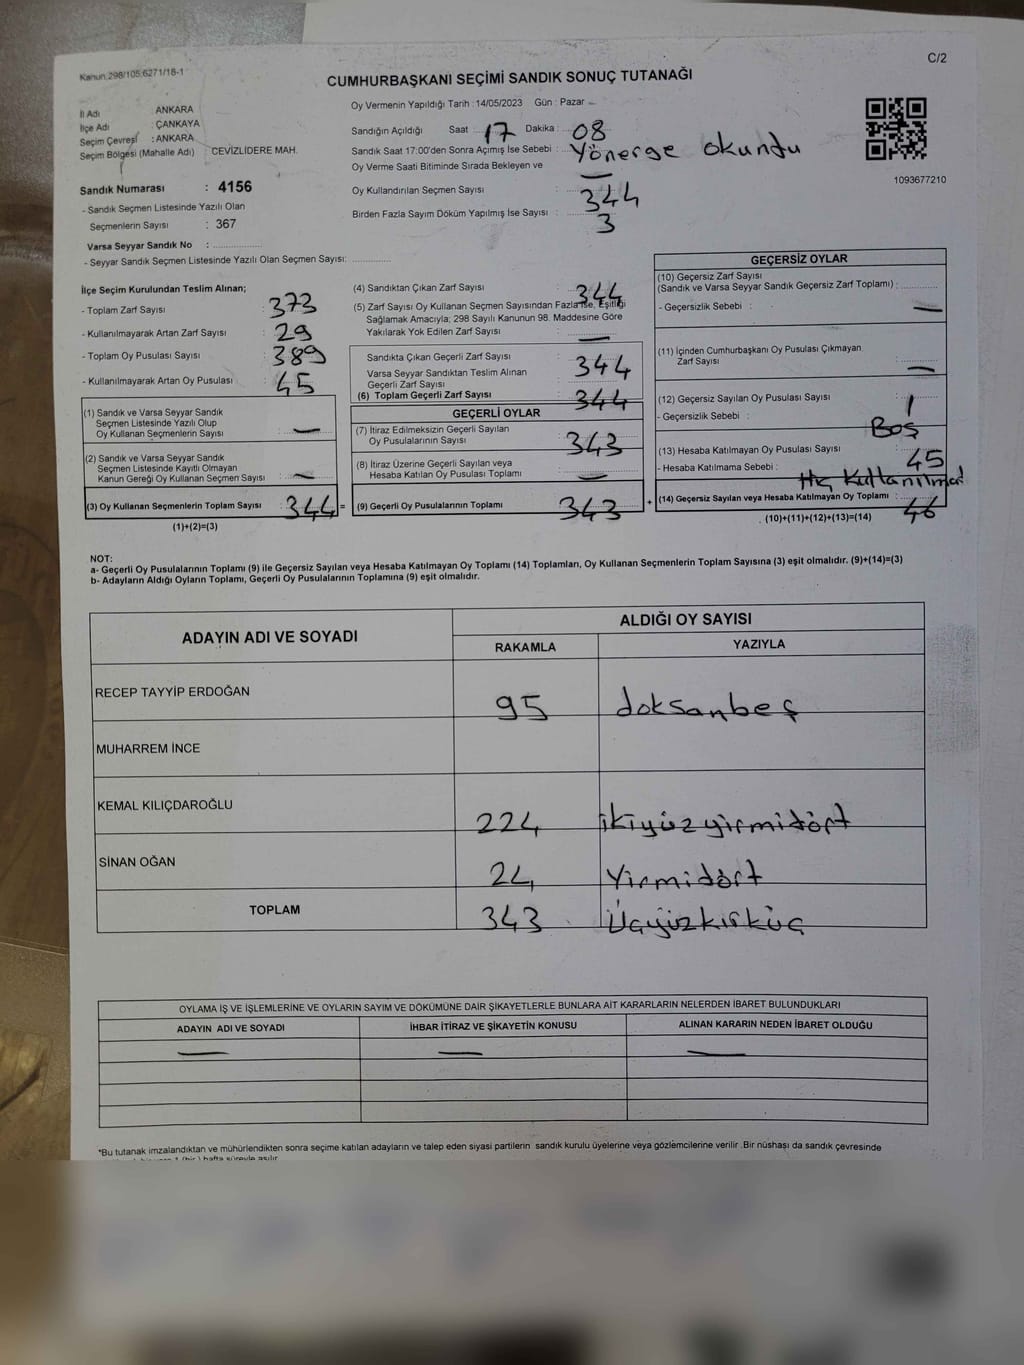 Kanun:298/105;6271/18-1
C/2
CUMHURBAŞKANI SEÇİMİ SANDIK SONUÇ TUTANAĞI
İl Adı ANKARA
İlçe Adı : ÇANKAYA
Seçim Çevresi : ANKARA
Seçim Bölgesi (Mahalle Adı) CEVİZLİDERE MAH.
Sandık Numarası : 4156
- Sandık Seçmen Listesinde Yazılı Olan
Seçmenlerin Sayısı : 367
Varsa Seyyar Sandık No :
- Seyyar Sandık Seçmen Listesinde Yazılı Olan Seçmen Sayısı:
Oy Vermenin Yapıldığı Tarih : 14/05/2023 Gün : Pazar
Sandığın Açıldığı Saat 17 Dakika : 08
Sandık Saat 17:00'den Sonra Açımış İse Sebebi : Yönerge okundu
Oy Verme Saati Bitiminde Sırada Bekleyen ve —
Oy Kullandırılan Seçmen Sayısı : 344
Birden Fazla Sayım Döküm Yapılmış İse Sayısı : 3
1093677210
İlçe Seçim Kurulundan Teslim Alınan;
- Toplam Zarf Sayısı : 373
- Kullanılmayarak Artan Zarf Sayısı : 29
- Toplam Oy Pusulası Sayısı : 389
- Kullanılmayarak Artan Oy Pusulası : 45
(1) Sandık ve Varsa Seyyar Sandık
Seçmen Listesinde Yazılı Olup
Oy Kullanan Seçmenlerin Sayısı : —
(2) Sandık ve Varsa Seyyar Sandık
Seçmen Listesinde Kayıtlı Olmayan
Kanun Gereği Oy Kullanan Seçmen Sayısı : —
(3) Oy Kullanan Seçmenlerin Toplam Sayısı : 344 =
(1)+(2)=(3)
(4) Sandıktan Çıkan Zarf Sayısı : 344
(5) Zarf Sayısı Oy Kullanan Seçmen Sayısından Fazla İse, Eşitliği
Sağlamak Amacıyla; 298 Sayılı Kanunun 98. Maddesine Göre
Yakılarak Yok Edilen Zarf Sayısı : —
Sandıkta Çıkan Geçerli Zarf Sayısı : 344
Varsa Seyyar Sandıktan Teslim Alınan
Geçerli Zarf Sayısı
(6) Toplam Geçerli Zarf Sayısı : 344
GEÇERLİ OYLAR
(7) İtiraz Edilmeksizin Geçerli Sayılan
Oy Pusulalarının Sayısı : 343
(8) İtiraz Üzerine Geçerli Sayılan veya
Hesaba Katılan Oy Pusulası Toplamı : —
(9) Geçerli Oy Pusulalarının Toplamı : 343 +
GEÇERSİZ OYLAR
(10) Geçersiz Zarf Sayısı
(Sandık ve Varsa Seyyar Sandık Geçersiz Zarf Toplamı) :
- Geçersizlik Sebebi : —
(11) İçinden Cumhurbaşkanı Oy Pusulası Çıkmayan
Zarf Sayısı : —
(12) Geçersiz Sayılan Oy Pusulası Sayısı : 1
- Geçersizlik Sebebi : Boş
(13) Hesaba Katılmayan Oy Pusulası Sayısı : 45
- Hesaba Katılmama Sebebi : Hiç Kullanılmadı
(14) Geçersiz Sayılan veya Hesaba Katılmayan Oy Toplamı : 46
(10)+(11)+(12)+(13)=(14)
NOT:
a- Geçerli Oy Pusulalarının Toplamı (9) ile Geçersiz Sayılan veya Hesaba Katılmayan Oy Toplamı (14) Toplamları, Oy Kullanan Seçmenlerin Toplam Sayısına (3) eşit olmalıdır. (9)+(14)=(3)
b- Adayların Aldığı Oyların Toplamı, Geçerli Oy Pusulalarının Toplamına (9) eşit olmalıdır.
ADAYIN ADI VE SOYADI
ALDIĞI OY SAYISI
RAKAMLA YAZIYLA
RECEP TAYYİP ERDOĞAN 95 doksanbeş
MUHARREM İNCE
KEMAL KILIÇDAROĞLU 224 ikiyüzyirmidört
SİNAN OĞAN 24 Yirmidört
TOPLAM 343 Üçyüzkırküç
OYLAMA İŞ VE İŞLEMLERİNE VE OYLARIN SAYIM VE DÖKÜMÜNE DAİR ŞİKAYETLERLE BUNLARA AİT KARARLARIN NELERDEN İBARET BULUNDUKLARI
ADAYIN ADI VE SOYADI İHBAR İTİRAZ VE ŞİKAYETİN KONUSU ALINAN KARARIN NEDEN İBARET OLDUĞU
— — —
*Bu tutanak imzalandıktan ve mühürlendikten sonra seçime katılan adayların ve talep eden siyasi partilerin sandık kurulu üyelerine veya gözlemcilerine verilir .Bir nüshası da sandık çevresinde